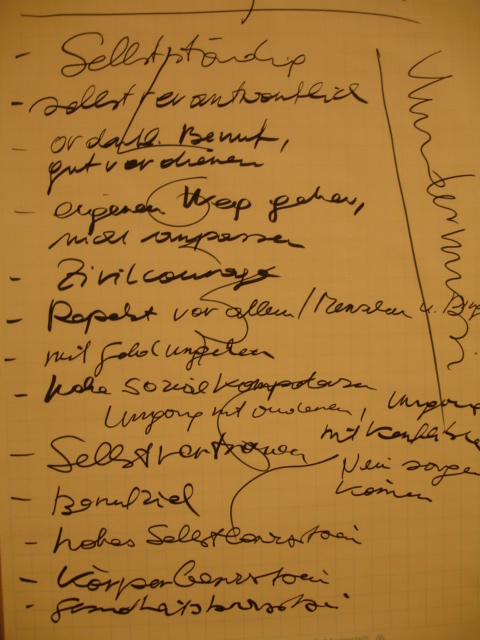 - Selbstständig
- selbstverantwortlich
- ordentl. Beruf,
gut verdienen
- eigenen Weg gehen,
nicht anpassen
- Zivilcourage
- Respekt vor allem / Menschen u.
- mit Geld umgehen
- hohe Sozialkompetenz
Umgang mit anderen, Umgang
mit Konflikten
- Selbstvertrauen
Nein sagen
können
- Berufziel
- hohes Selbstbewusstsein
- Körperbewusstsein
- Gesundheitsbewusstsein